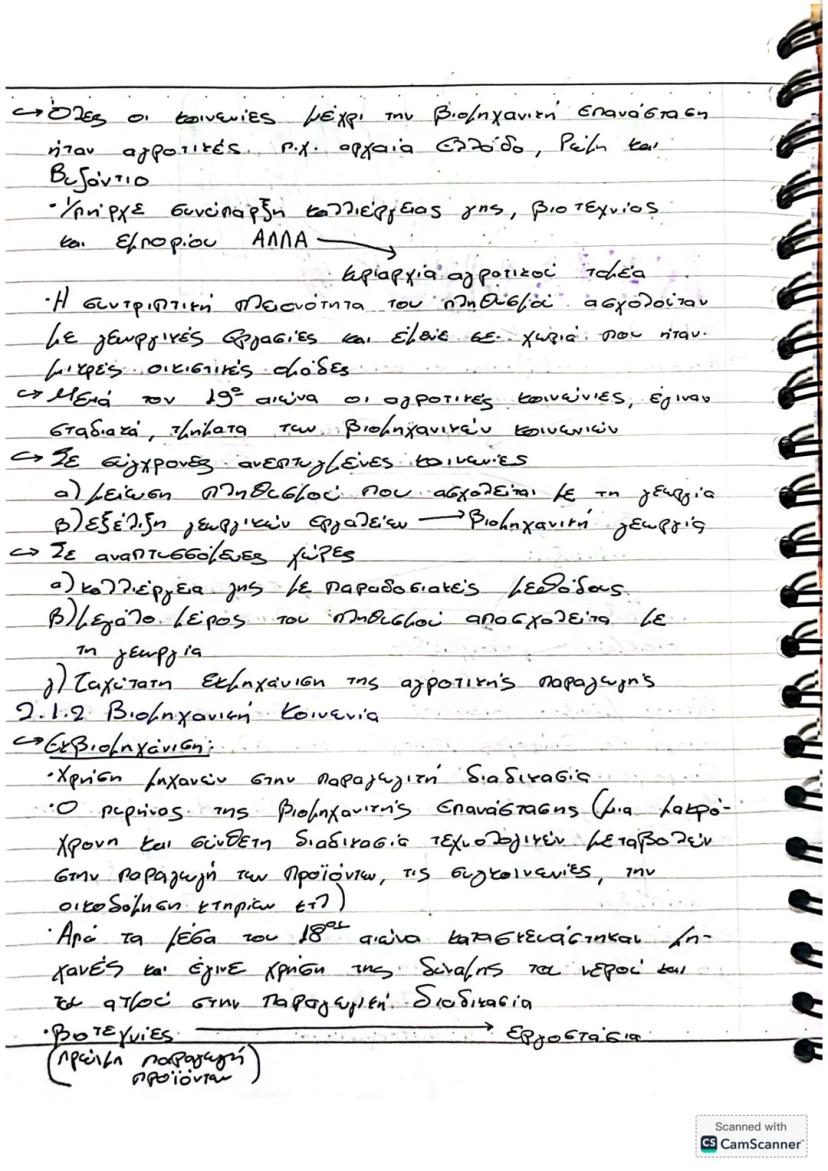 → Όλες οι κοινωνίες μέχρι την βιομηχανική επανάσταση
ήταν αγροτικές. π.χ. αρχαία Ελλάδα, Ρώμη και
Βυζάντιο
· Υπήρχε συνύπαρξη καλλιέργειας γης, βιοτεχνίας
και εμπορίου ΑΛΛΑ →
κυριαρχία αγροτικού τομέα
· Η συντριπτική πλειονότητα του πληθυσμού ασχολούταν
με γεωργικές εργασίες και έμενε σε χωριά που ήταν
μικρές οικιστικές ομάδες
→ Μετά τον 19ο αιώνα οι αγροτικές κοινωνίες, έγιναν
σταδιακά, τμήματα των βιομηχανικών κοινωνιών
→ Σε σύγχρονες ανεπτυγμένες κοινωνίες
α) μείωση πληθυσμού που ασχολείται με τη γεωργία
β) εξέλιξη γεωργικών εργαλείων → βιομηχανική γεωργία
→ Σε αναπτυσσόμενες χώρες
α) καλλιέργεια γης με παραδοσιακές μεθόδους
β) μεγάλο μέρος του πληθυσμού απασχολείται με
τη γεωργία
γ) Ταχύτατη εκμηχάνιση της αγροτικής παραγωγής
2.1.2 Βιομηχανική Κοινωνία
→ Εκβιομηχάνιση:
· Χρήση μηχανών στην παραγωγική διαδικασία
· Ο πυρήνας της βιομηχανικής επανάστασης (μια μακρό-
χρονη και σύνθετη διαδικασία τεχνολογικών μεταβολών
στην παραγωγή των προϊόντων, τις συγκοινωνίες, την
οικοδόμηση κτηρίων κτλ)
· Από τα μέσα του 18ου αιώνα κατασκευάστηκαν μη-
χανές και έγινε χρήση της δύναμης του νερού και
του ατμού στην παραγωγική διαδικασία
· Βιοτεχνίες → εργοστάσια
(πρώιμη παραγωγή
προϊόντων)
Scanned with
CS CamScanner